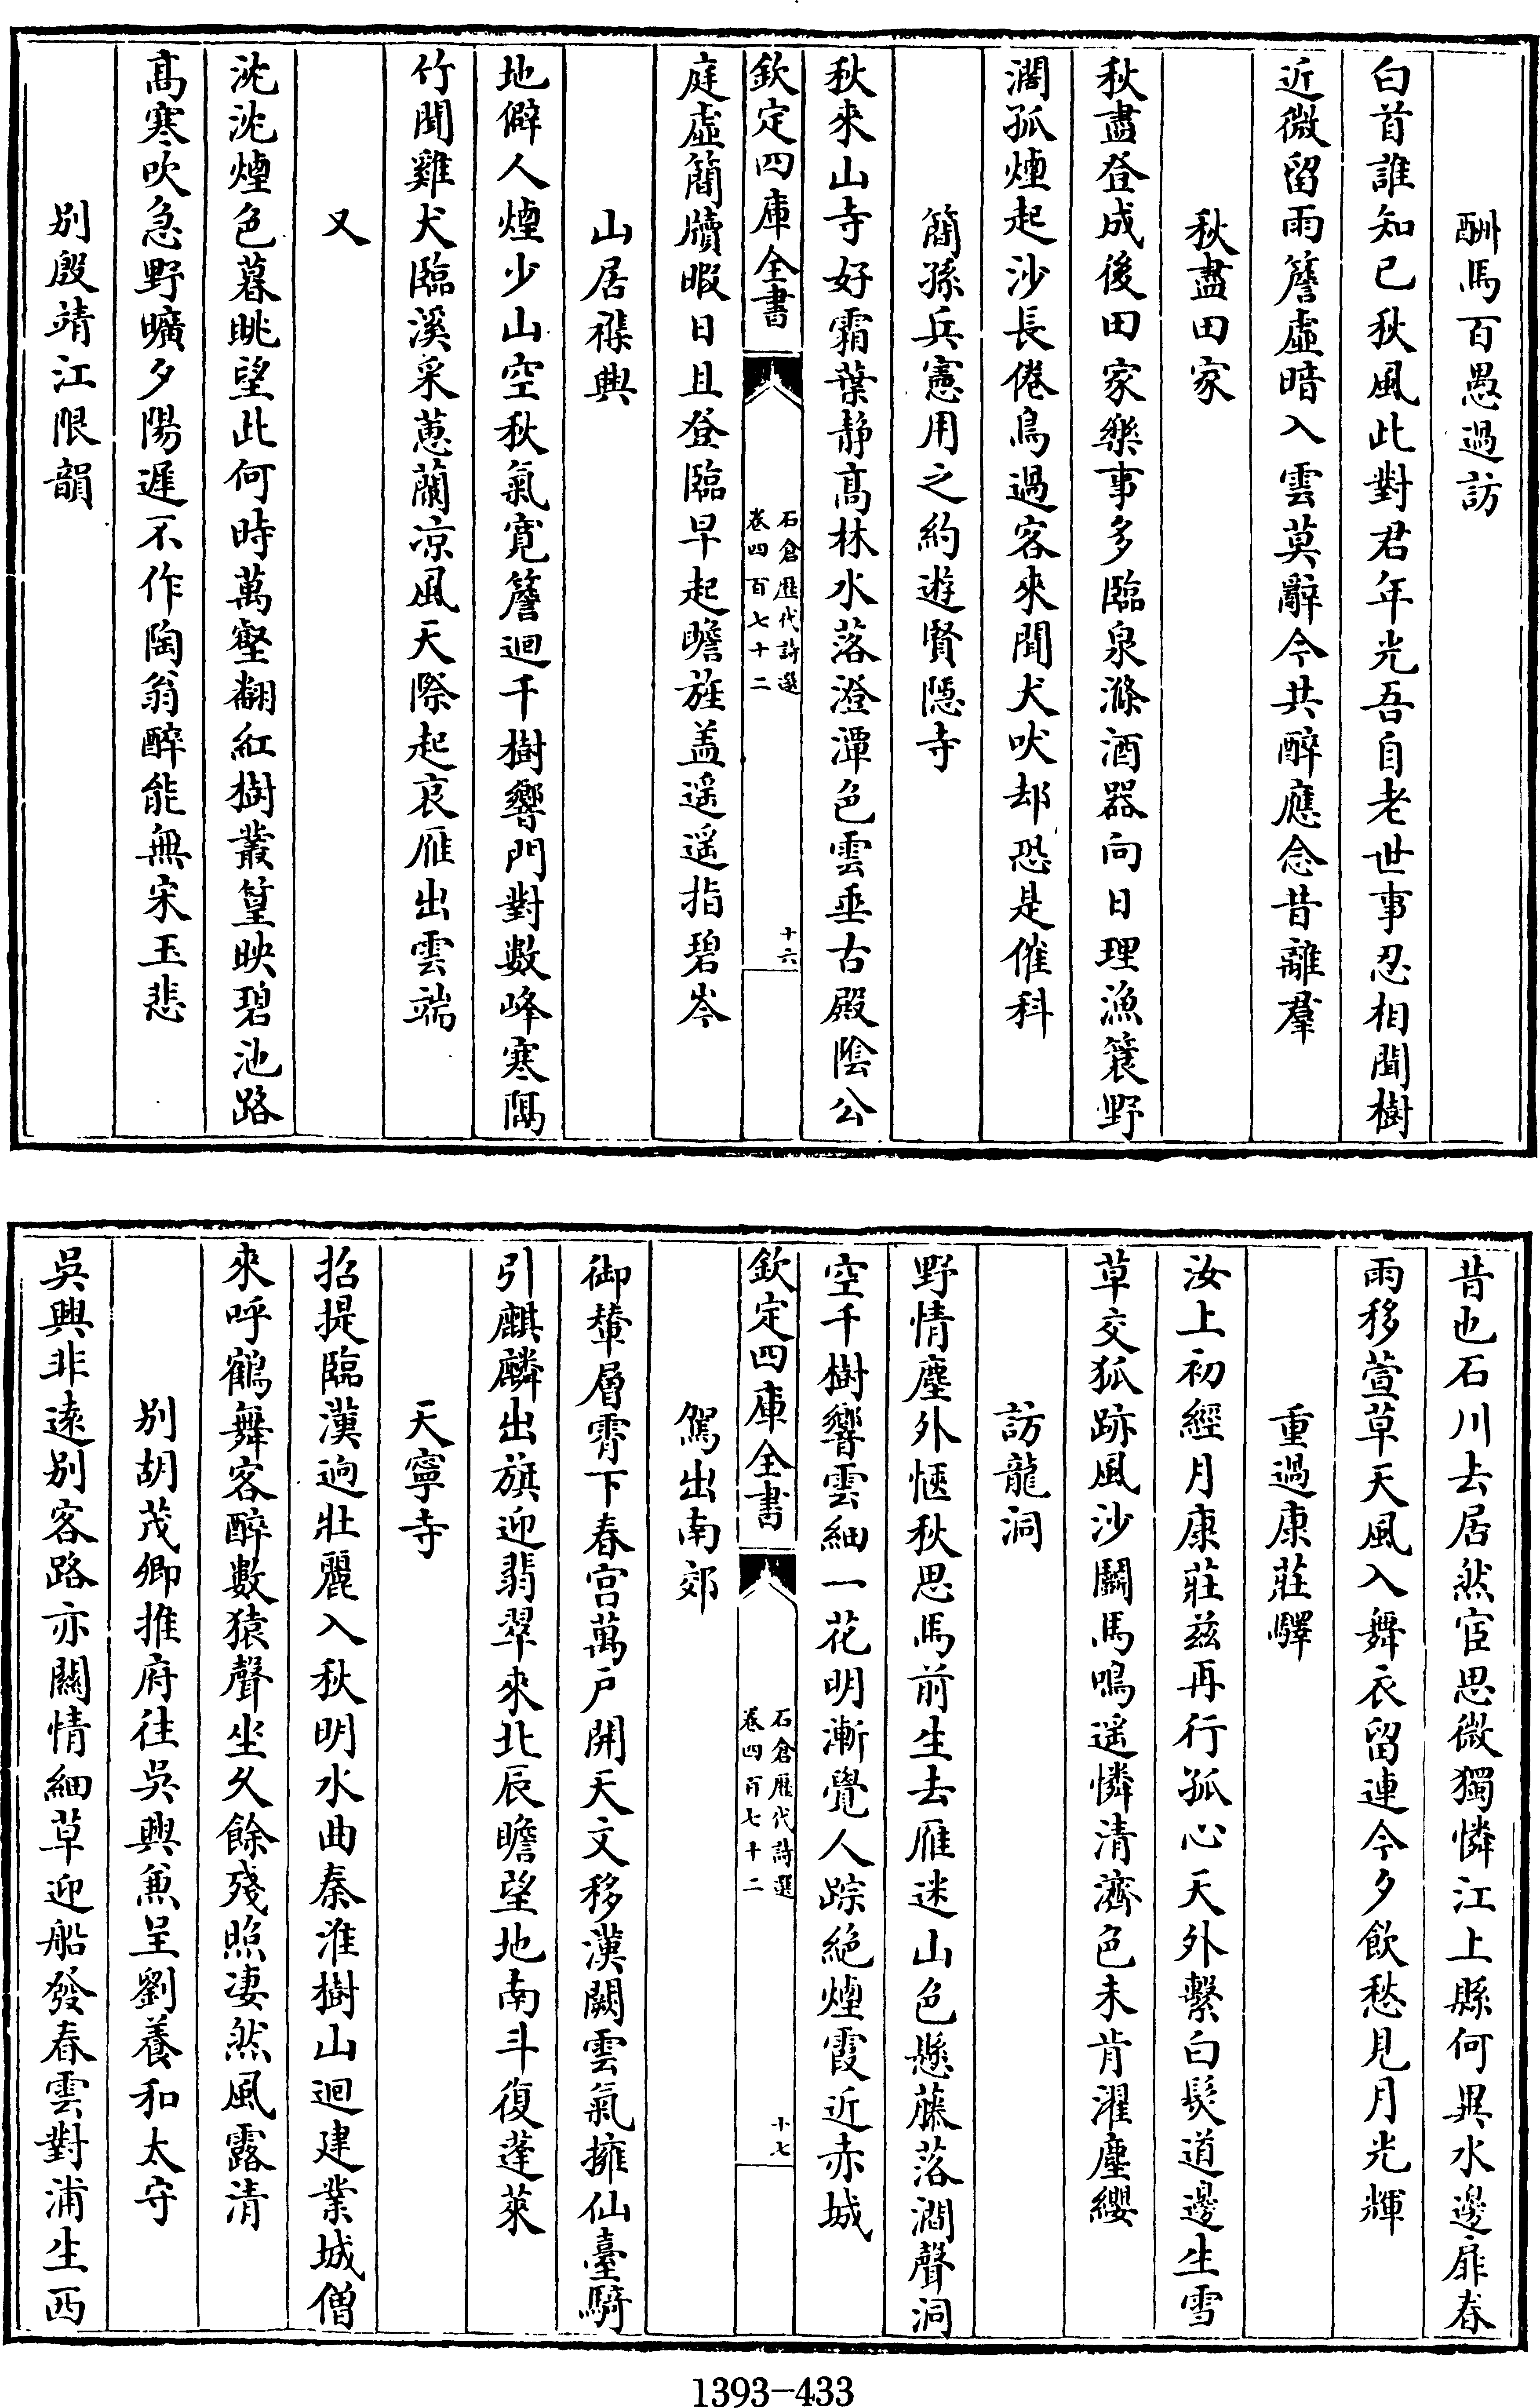 酬馬百愚過訪
白首誰知己秋風此對君年光吾自老世事忍相聞樹
近微留雨簷虛暗入雲莫辭今共醉應念昔離羣
秋盡田家
秋盡登成後田家樂事多臨泉滌酒器向日理漁簑野
濶孤煙起沙長倦鳥過客來聞犬吠却恐是催科
簡孫兵憲用之約遊賢隱寺
秋來山寺好霜葉静髙林水落澄潭色雲垂古殿陰公
欽定四庫全書
石倉歷代詩選
卷四百七十二
十六
庭虛簡牘暇日且登臨早起瞻旌盖遥遥指碧岑
山居襍興
地僻人煙少山空秋氣寛簷迴千樹響門對數峰寒隔
竹聞雞犬臨溪采蕙蘭凉風天際起哀雁出雲端
又
沈沈煙色暮眺望此何時萬壑翻紅樹叢篁映碧池路
髙寒吹急野曠夕陽遲不作陶翁醉能無宋玉悲
别殷靖江限韻
昔也石川去居然宦思微獨憐江上縣何異水邊扉春
雨移萱草天風入舞衣留連今夕飲愁見月光輝
重過康莊驛
汝上初經月康莊兹再行孤心天外繫白髮道邊生雪
草交狐跡風沙鬭馬鳴遥憐清濟色未肯濯塵纓
訪龍洞
野情塵外愜秋思馬前生去雁迷山色懸藤落澗聲洞
空千樹響雲細一花明漸覺人踪絶煙霞近赤城
欽定四庫全書
石倉歷代詩選
卷四百七十二
十七
駕出南郊
御輦層霄下春宫萬戶開天文移漢闕雲氣擁仙臺騎
引麒麟出旗迎翡翠來北辰瞻望地南斗復蓬萊
天寧寺
招提臨漢逈壯麗入秋明水曲秦淮樹山迴建業城僧
來呼鶴舞客醉數猿聲坐久餘殘照凄然風露清
别胡茂卿推府往吳興兼呈劉養和太守
吳興非遠别客路亦關情細草迎船發春雲對浦生西
1393-433